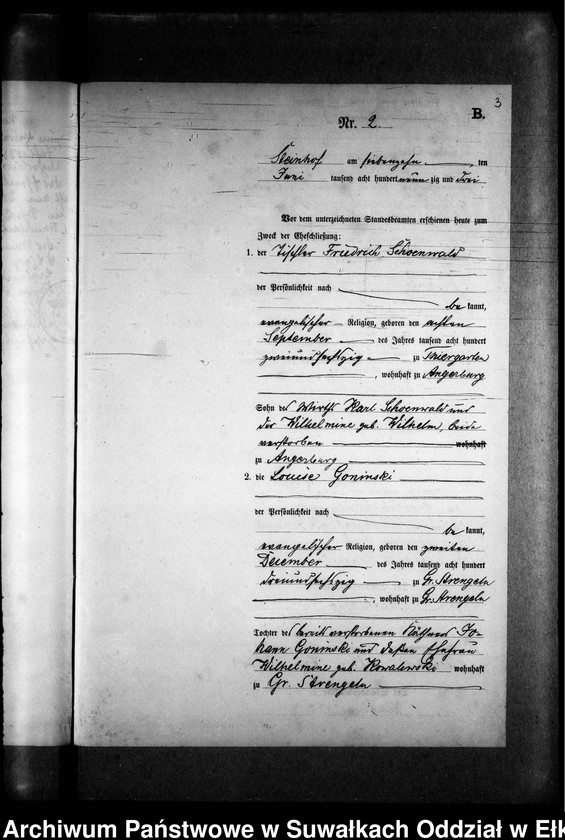 3
B.
Nr. 2.
Steinhof am siebenzehn ten
Juni tausend acht hundert neun zig und drei
Vor dem unterzeichneten Standesbeamten erschienen heute zum
Zweck der Eheschließung:
1. der Tischler Friedrich Schoenwald
der Persönlichkeit nach
be kannt,
evangelischer Religion, geboren den achten
September des Jahres tausend acht hundert
zweiundsechszig zu Thiergarten
, wohnhaft zu Angerburg
Sohn des Wirths Karl Schoenwald und
der Wilhelmine geb. Wilhelm, beide
verstorben wohnhaft
zu Angerburg
2. die Louise Goninski
der Persönlichkeit nach
be kannt,
evangelischer Religion, geboren den zweiten
December des Jahres tausend acht hundert
dreiundsechszig zu Gr. Strengeln
, wohnhaft zu Gr. Strengeln
Tochter des bereits verstorbenen Käthners Jo-
hann Goninski und dessen Ehefrau
Wilhelmine geb. Kowalewski wohnhaft
zu Gr. Strengeln
Archiwum Państwowe w Suwałkach Oddział w Ełk